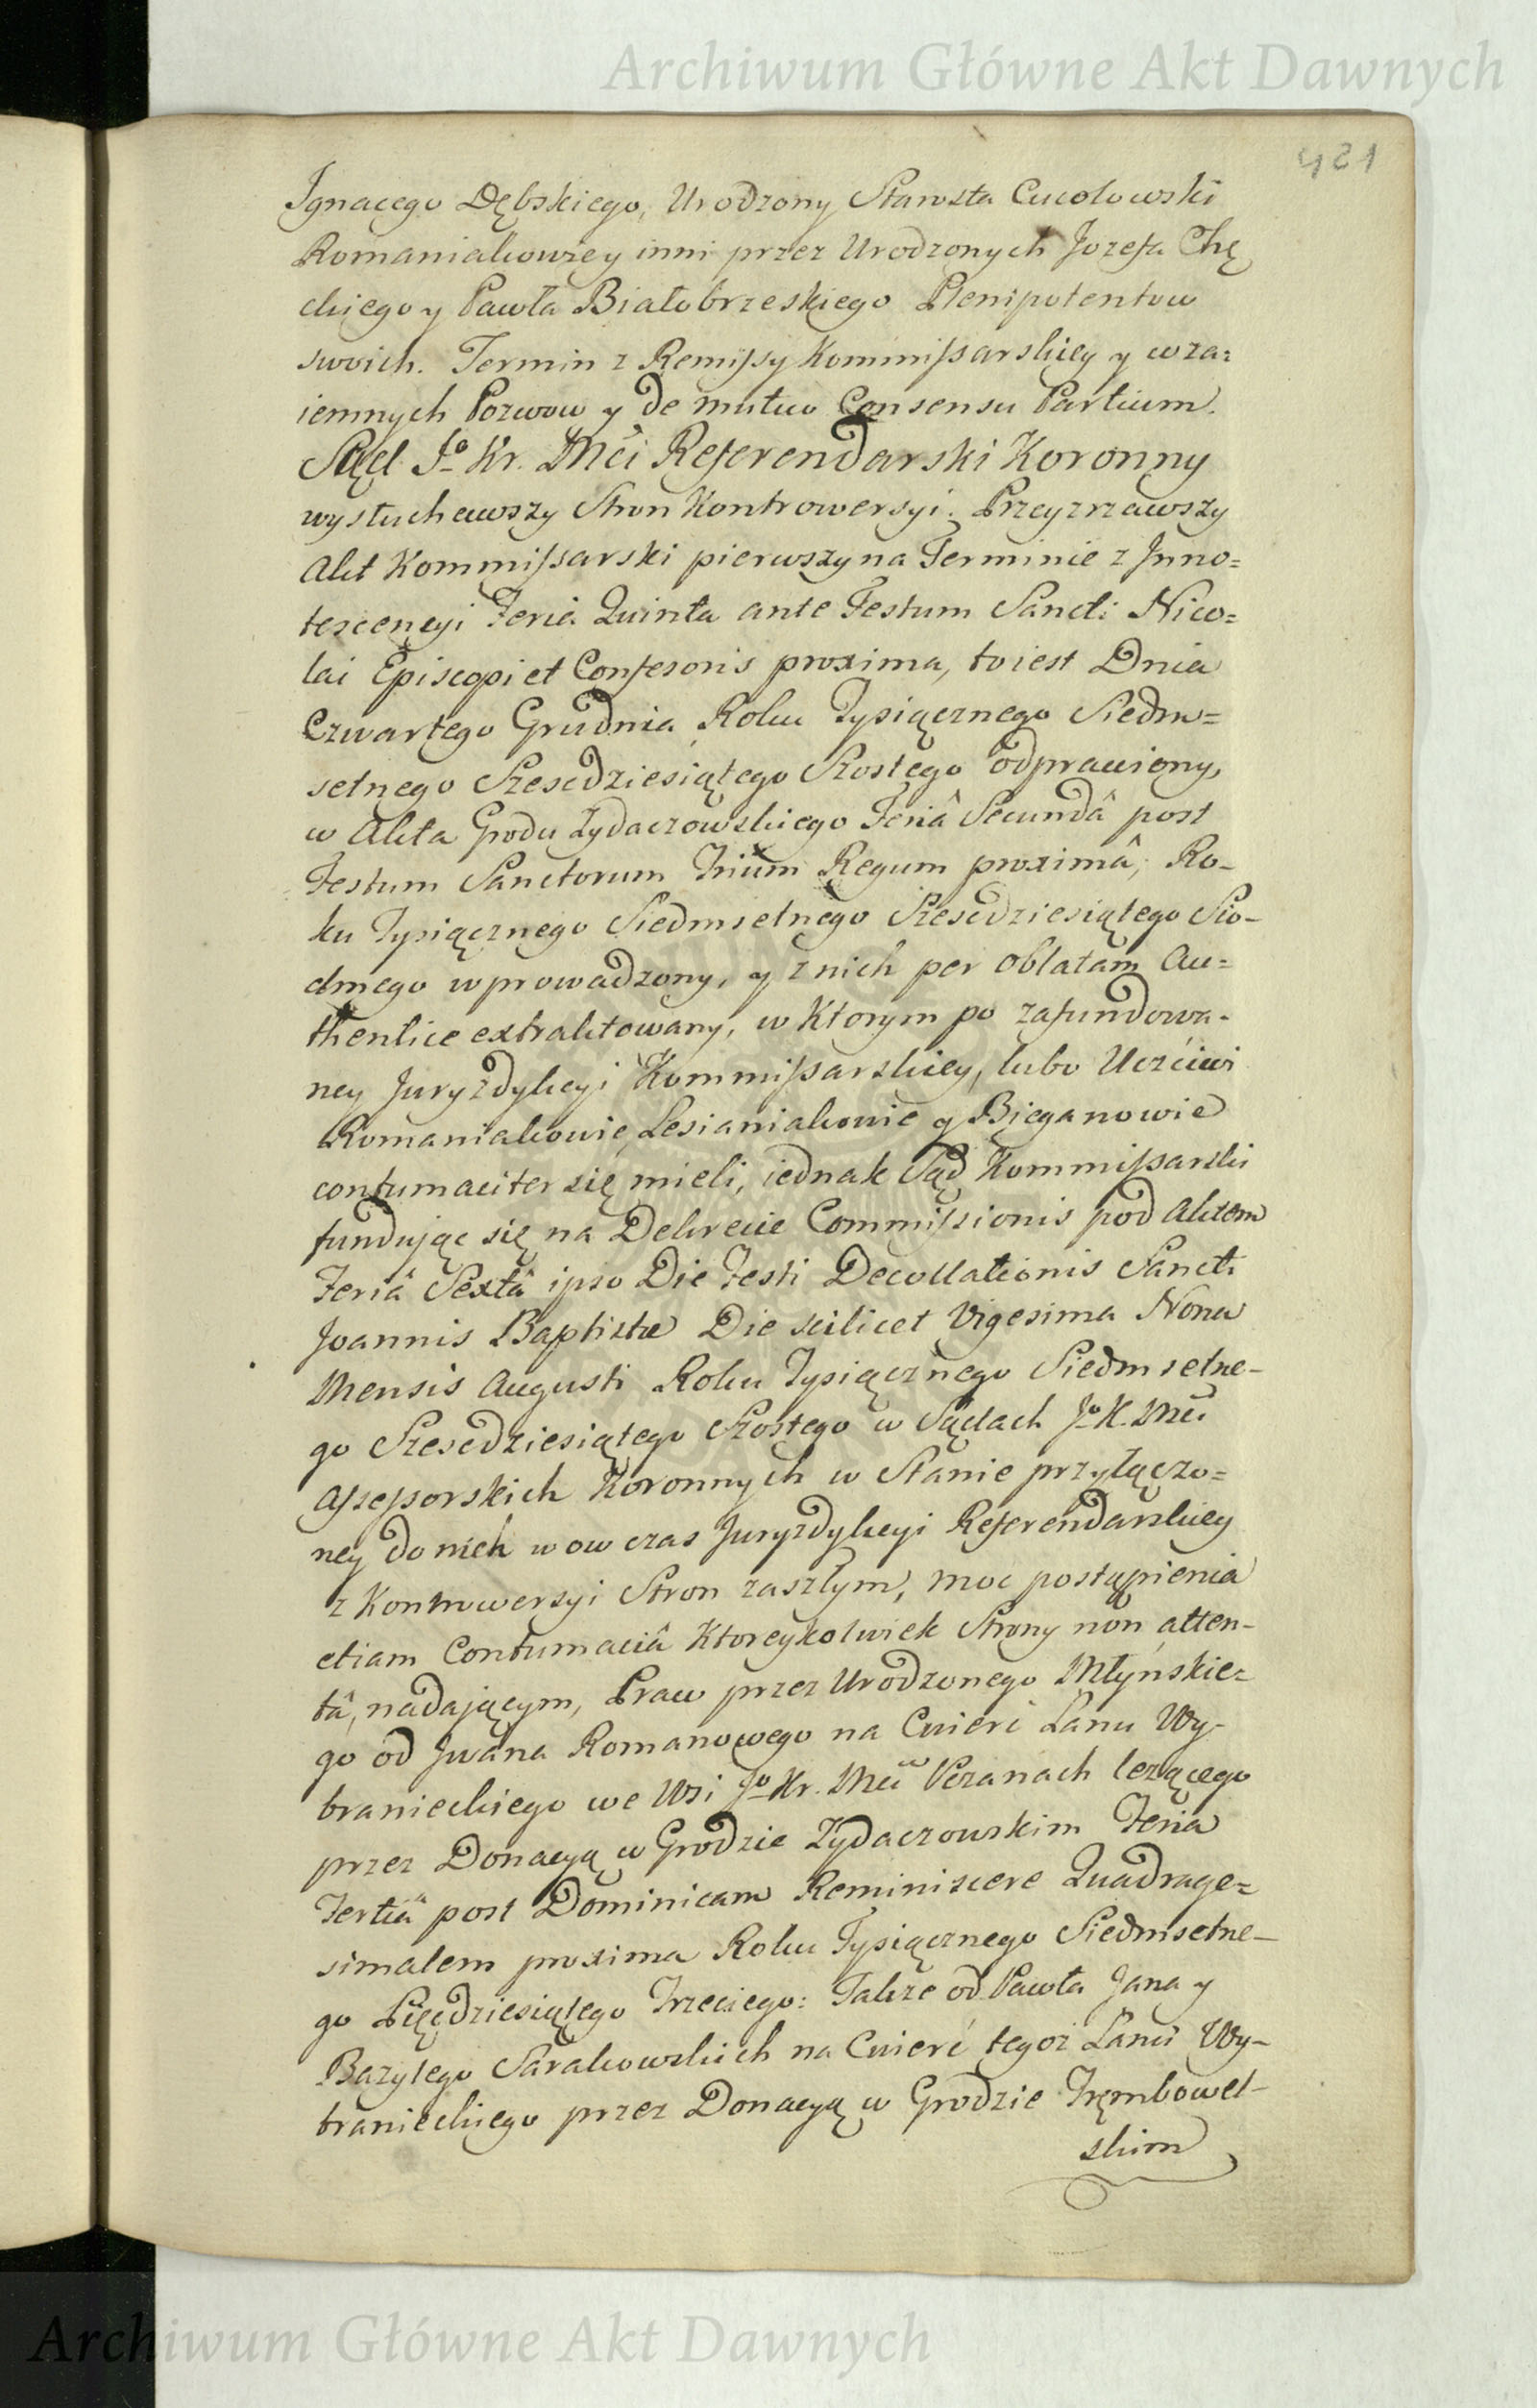 Archiwum Główne Akt Dawnych
421
Ignacego Dębskiego, Urodzony Starosta Cucolowski
Romaniakowie y inni przez Urodzonych Jozefa Chę
ckiego y Pawła Białobrzeskiego Plenipotentow
swoich. Termin z Remissy Kommissarskiey y wza=
iemnych Pozwow y de mutuo Consensu Partium.
Sąd Jo Kr. Mci Referendarski Koronny
wysłuchawszy Stron Kontrowersyi. Przeyzrzawszy
Akt Kommissarski pierwszy na Terminie z Inno=
tescencyi Feria Quinta ante Festum Sancti Nico=
lai Episcopi et Confesoris proxima, to iest Dnia
Czwartego Grudnia Roku Tysiącznego Siedm=
setnego Szescdziesiątego Szostego odprawiony,
w Akta Grodu Zydaczowskiego Feriâ Secundâ post
Festum Sanctorum Trium Regum proximâ, Ro-
ku Tysiącznego Siedmsetnego Szescdziesiątego Sio-
dmego wprowadzony, y z nich per Oblatam Au=
thentice extraktowany, w Ktorym po zafundowa-
ney Juryzdykcyi Kommissarskiey, lubo Uczciwi
Romaniakowie, Lesianiakowie y Bieganowie
contumaciter się mieli, iednak Sąd Kommissarski
fundując się na Dekrecie Commissionis pod Aktem
Feriâ Sextâ ipso Die Festi Decollationis Sancti
Joannis Baptistæ Die scilicet Vigesima Nona
Mensis Augusti Roku Tysiącznego Siedmsetne-
go Szescdziesiątego Szostego w Sądach Jo K. Mci
Assessorskich Koronnych w Stanie przyłączo=
ney do nich wow czas Juryzdykcyi Referendarskiey
z Kontrowersyi Stron zaszłym, moc postąpienia
etiam Contumaciâ Ktoreykolwiek Strony non atten-
tâ, nadającym, Praw przez Urodzonego Młyńskie=
go od Jwana Romanowego na Cwierć Lanu Wy-
branieckiego we Wsi Jo Kr. Mci Vczanach lezącego
przez Donacyą w Grodzie Zydaczowskim Feria
Tertiâ post Dominicam Reminiscere Quadrage=
simalem proxima Roku Tysiącznego Siedmsetne-
go Pięcdziesiątego Trzeciego: Takze od Pawła Jana y
Bazylego Sarakowskich na Cwierć tegoz Lanu Wy-
branieckiego przez Donacyą w Grodzie Trembowel-
skim
Archiwum Główne Akt Dawnych